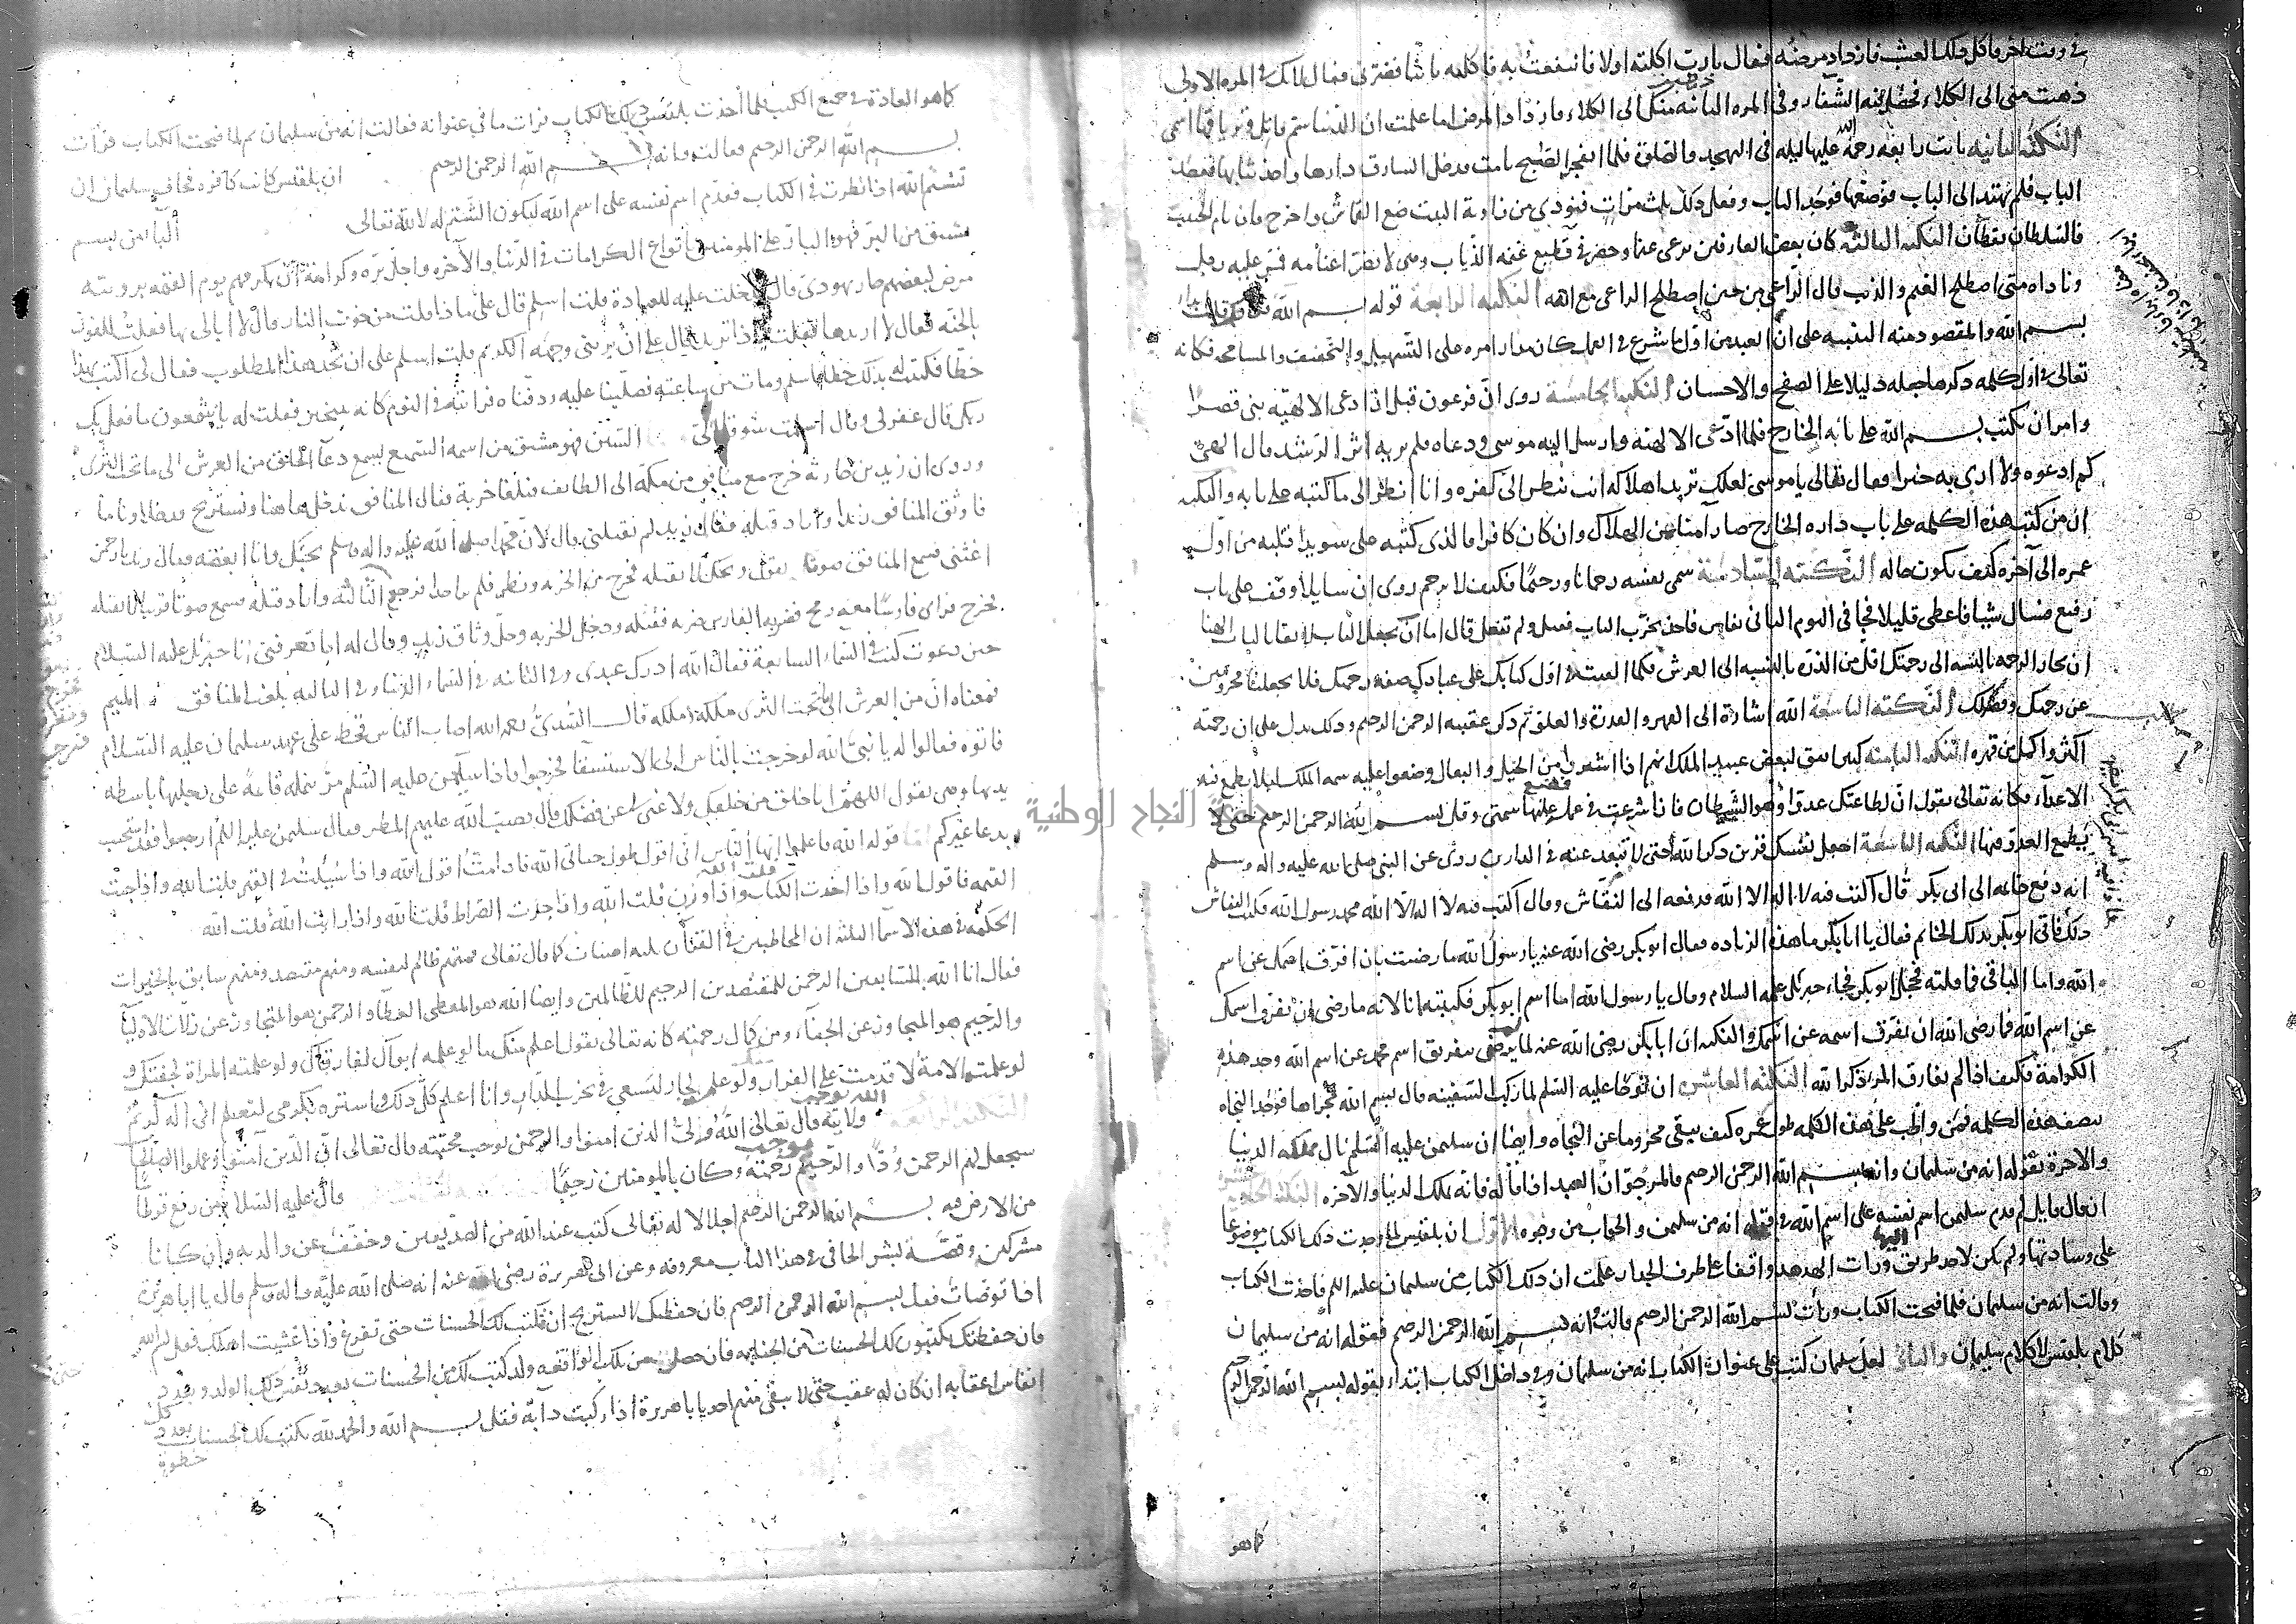 في وقت اخر فاكل ذلك العشب فازداد مرضه فقال يا رب اكلته اولا فانتفعت به فاكلته ثانيا فضرني فقال لانك في المره الاولى
ذهبت مني الى الكلاء فحصل فيه الشفاء وفي المره الثانيه ذهبت منك الى الكلاء فازداد المرض اما علمت ان الدنيا سم قاتل وترياقها اسمي
النكته الثانيه باتت رابعه رحمة الله عليها ليله في التهجد والصلوة فلما انفجر الصبح نامت فدخل السارق دارها واخذ ثيابها وقصد
الباب فلم يهتد الى الباب فوضعها فوجد الباب وفعل ذلك ثلث مرات فنودي من زاوية البيت ضع القماش واخرج فان نام الحبيب
فالسلطان يقظان النكته الثالثه كان بعض العارفين يرعى غنما وحضر في قطيع غنمه الذياب وهي لا تضر اغنامه فمر عليه رجل
وناداه متى اصطلح الغنم والذئب قال الراعي من حين اصطلح الراعي مع الله النكته الرابعة قوله بسم الله
بسم الله والمقصود منه التنبيه على ان العبد من اول ما شرع في العمل كان مدار امره على التسهيل والتخفيف والمسامحه فكانه
تعالى في اول كلمه ذكرها جعله دليلا على الصفح والاحسان النكته الخامسة روى ان فرعون قبل ان ادعى الالهيه بنى قصرا
وامر ان يكتب بسم الله على بابه الخارج فلما ادعى الالهيه وارسل اليه موسى ودعاه فلم ير به اثر الرشد قال الهي
كم ادعوه ولا ارى به خيرا فقال تعالى يا موسى لعلك تريد اهلاكه انت تنظر الى كفره وانا انظر الى ما كتبه على بابه والنكته
ان من كتب هذه الكلمه على باب داره الخارج صار امنا من الهلاك وان كان كافرا فالذي كتبه على سويدا قلبه من اول
عمره الى آخره كيف يكون حاله النكته السادسة سمى نفسه رحمانا ورحيما فكيف لا يرحم روى ان سايلا وقف على باب
رفيع فسال شيا فاعطي قليلا فجا في اليوم الثاني بفاس فاخذ يخرب الباب فقيل ولم تفعل قال اما ان تجعل الباب لايقا الهنا
ان بحار الرحمه بالنسبه الى رحمتك اقل من الذره بالنسبه الى العرش فكما القيت في اول كتابك على عبادك صفه رحمتك فلا تجعلنا محرومين
عن رحمتك وفضلك النكته السابعة الله اشارة الى القهر والقدرة والعلو ثم ذكر عقيبه الرحمن الرحيم وذلك يدل على ان رحمته
اكثر واكمل من قهره النكته الثامنه كثيرا يتفق لبعض عبيد الملك انهم اذا اشتروا من الخيل والبغال وضعوا عليه سمه الملك ليلا يطمع فيه
الاعداء فكانه تعالى يقول ان لطاعتك عدوا وهو الشيطان فاذا شرعت في عمل فضع عليها سمتي وقل بسم الله الرحمن الرحيم حتى لا
يطمع العدو فيها النكته التاسعة اجعل نفسك قرين ذكر الله حتى لا تبعد عنه في الدارين روى عن النبي صلى الله عليه واله وسلم
انه دفع خاتمه الى ابي بكر قال اكتب فيه لا اله الا الله فدفعه الى النقاش وقال اكتب فيه لا اله الا الله محمد رسول الله فكتب النقاش
ذلك فاتى ابو بكر بذلك الخاتم فقال يا ابا بكر ما هذه الزياده فقال ابو بكر رضي الله عنه يا رسول الله ما رضيت بان افرق اسمك عن اسم
الله واما الباقي فما قلته فخجل ابو بكر فجاء جبرئل عليه السلام وقال يا رسول الله اما اسم ابو بكر فكتبته انا لانه ما رضي ان يفرق اسمك
عن اسم الله فما رضي الله ان يفرق اسمه عن اسمك والنكته ان ابا بكر رضي الله عنه لما لم يرض بتفريق اسم محمد عن اسم الله وجد هذه
الكرامة فكيف اذا لم يفارق المرء ذكر الله النكته العاشره ان نوحا عليه السلم لما ركب السفينه قال بسم الله مجراها فوجد النجاه
بنصف هذه الكلمه فمن واظب على هذه الكلمه طول عمره كيف يبقى محروما عن النجاه وايضا ان سليمن عليه السلم نال مملكه الدنيا
والاخرة بقوله انه من سليمان وانه بسم الله الرحمن الرحيم فالمرجو ان العبد اذا قاله فانه يملك الدنيا والآخره
ان قال قايل لم قدم سليمن اسم نفسه على اسم الله في قوله انه من سليمن والجواب من وجوه الاول ان بلقيس لما وجدت ذلك الكتاب موضوعا
على وسادتها ولم يكن لاحد اليها طريق ورات الهدهد واقفا على طرف الجدار علمت ان ذلك الكتاب من سليمان عليه السلم فاخذت الكتاب
وقالت انه من سليمان فلما فتحت الكتاب ورأت بسم الله الرحمن الرحيم قالت وانه بسم الله الرحمن الرحيم فقوله انه من سليمان
كلام بلقيس لا كلام سليمان والثاني لعل سليمان كتب على عنوان الكتاب انه من سليمان وفي داخل الكتاب ابتداء بقوله بسم الله الرحمن الرحيم
كما هو
كما هو العادة في جميع الكتب فلما أخذت بلقيس ذلك الكتاب قرات ما في عنوانه فقالت انه من سليمان ثم لما فتحت الكتاب قرأت
بسم الله الرحمن الرحيم فقالت وانه بسم الله الرحمن الرحيم ان بلقيس كانت كافره فخاف سليمان ان
تشتم الله اذا نظرت في الكتاب فقدم اسم نفسه على اسم الله ليكون الشتم له لا لله تعالى الباء من بسم
مشتق من البر فهو البار على المومنين بانواع الكرامات في الدنيا والآخره واجل بره وكرامته ان يكرمهم يوم القيمه برويته
مرض لبعضهم جار يهودي قال فدخلت عليه للعيادة فقلت اسلم قال على ماذا قلت من خوف النار قال لا ابالي بها فقلت للفوز
بالجنه فقال لا اريدها فقلت فماذا تريد قال على ان يريني وجهه الكريم قلت اسلم على ان تجد هذا المطلوب فقال لي اكتب بهذا
خطا فكتبت له بذلك خطا فاسلم ومات من ساعته فصلينا عليه ودفناه فرايته في النوم كانه يتبختر فقلت له يا شمعون ما فعل بك
ربك قال غفر لي وقال اسلمت شوقا الي السين فهو مشتق من اسمه السميع يسمع دعاء الخلق من العرش الى ما تحت الثرى
وروى ان زيد بن حارثه خرج مع منافق من مكه الى الطائف فبلغا خربة فقال المنافق ندخل هاهنا ونستريح فدخلا وناما
فاوثق المنافق زيدا واراد قتله فقال زيد لم تقتلني قال لان محمدا صلى الله عليه واله وسلم يحبك وانا ابغضه فقال زيد يا رحمن
اغثني فسمع المنافق صوتا يقول ويحك لا تقتله فخرج من الخربه ونظر فلم ير احدا فرجع الثالثه واراد قتله فسمع صوتا قريبا لا تقتله
فخرج فراى فارسا معه رمح فضربه الفارس ضربه فقتله ودخل الخربه وحل وثاق زيد وقال له اما تعرفني انا جبرئل عليه السلام
حين دعوت كنت في السماء السابعة فقال الله ادرك عبدي وفي الثانيه في السماء الدنيا وفي الثالثه بلغت المنافق الميم
فمعناه ان من العرش الى تحت الثرى ملكه وملكه قال السدي رحمه الله اصاب الناس قحط على عهد سليمان عليه السلام
فاتوه فقالوا له يا نبي الله لو خرجت بالناس الى الاستسقا فخرجوا فاذا سليمن عليه السلم مر بنمله قائمة على رجليها باسطه
يديها وهي تقول اللهم انا خلق من خلقك ولا غنى عن فضلك قال فصب الله عليهم المطر فقال سليمن عليه السلم ارجعوا فقد استجيب
بدعا غيركم قوله الله فاعلموا ايها الناس اني اقول طول حياتي الله فاذا مت اقول الله واذا سئلت في القبر قلت الله واذا جئت
القيمه فاقول الله واذا اخذت الكتاب قلت الله واذا وزن قلت الله واذا جزت الصراط قلت الله واذا رايت الله قلت الله
الحكمه في هذه الاسما الثلثه ان المخاطبين في القرأن ثلثه اصناف كما قال تعالى فمنهم ظالم لنفسه ومنهم مقتصد ومنهم سابق بالخيرات
فقال انا الله للسابقين الرحمن للمقتصدين الرحيم للظالمين وايضا الله هو المعطي العطا والرحمن هو المتجاوز عن زلات الاوليا
والرحيم هو المتجاوز عن الجفاء ومن كمال رحمته كانه تعالى يقول اعلم منك ما لو علمه ابواك لفارقاك ولو علمته المراة لجفتك و
لو علمته الامة لاقدمت على الفرار ولو علمه الجار لسعى في تخريب الدار وانا اعلم كل ذلك واستره بكرمي لتعلم اني اله كريم
الله يوجب ولايته قال تعالى الله ولي الذين امنوا والرحمن يوجب محبته قال تعالى ان الذين آمنوا وعملوا الصالحات
سيجعل لهم الرحمن ودا والرحيم يوجب رحمته وكان بالمومنين رحيما قال عليه السلام من رفع قرطاسا
من الارض فيه بسم الله الرحمن الرحيم اجلالا له تعالى كتب عند الله من الصديقين وخفف عن والديه وان كانا
مشركين وقصة بشر الحافي في هذا الباب معروفه وعن ابي هريرة رضي الله عنه انه صلى الله عليه واله وسلم قال يا ابا هريرة
اذا توضات فقل بسم الله الرحمن الرحيم فان حفظتك لا تستريح ان تكتب لك الحسنات حتى تفرغ واذا غشيت اهلك فقل بسم الله
فان حفظتك يكتبون لك الحسنات من الجنابه فان حصل من تلك المواقعه ولد كتب لك من الحسنات بعدد نفس ذلك الولد وبعدد
انفاس اعقابه ان كان له عقب حتى لا يبقى منهم احد يا با هريرة اذا ركبت دابة فقل بسم الله والحمد لله تكتب لك الحسنات بعدد كل
خطوة
جامعة النجاح الوطنية